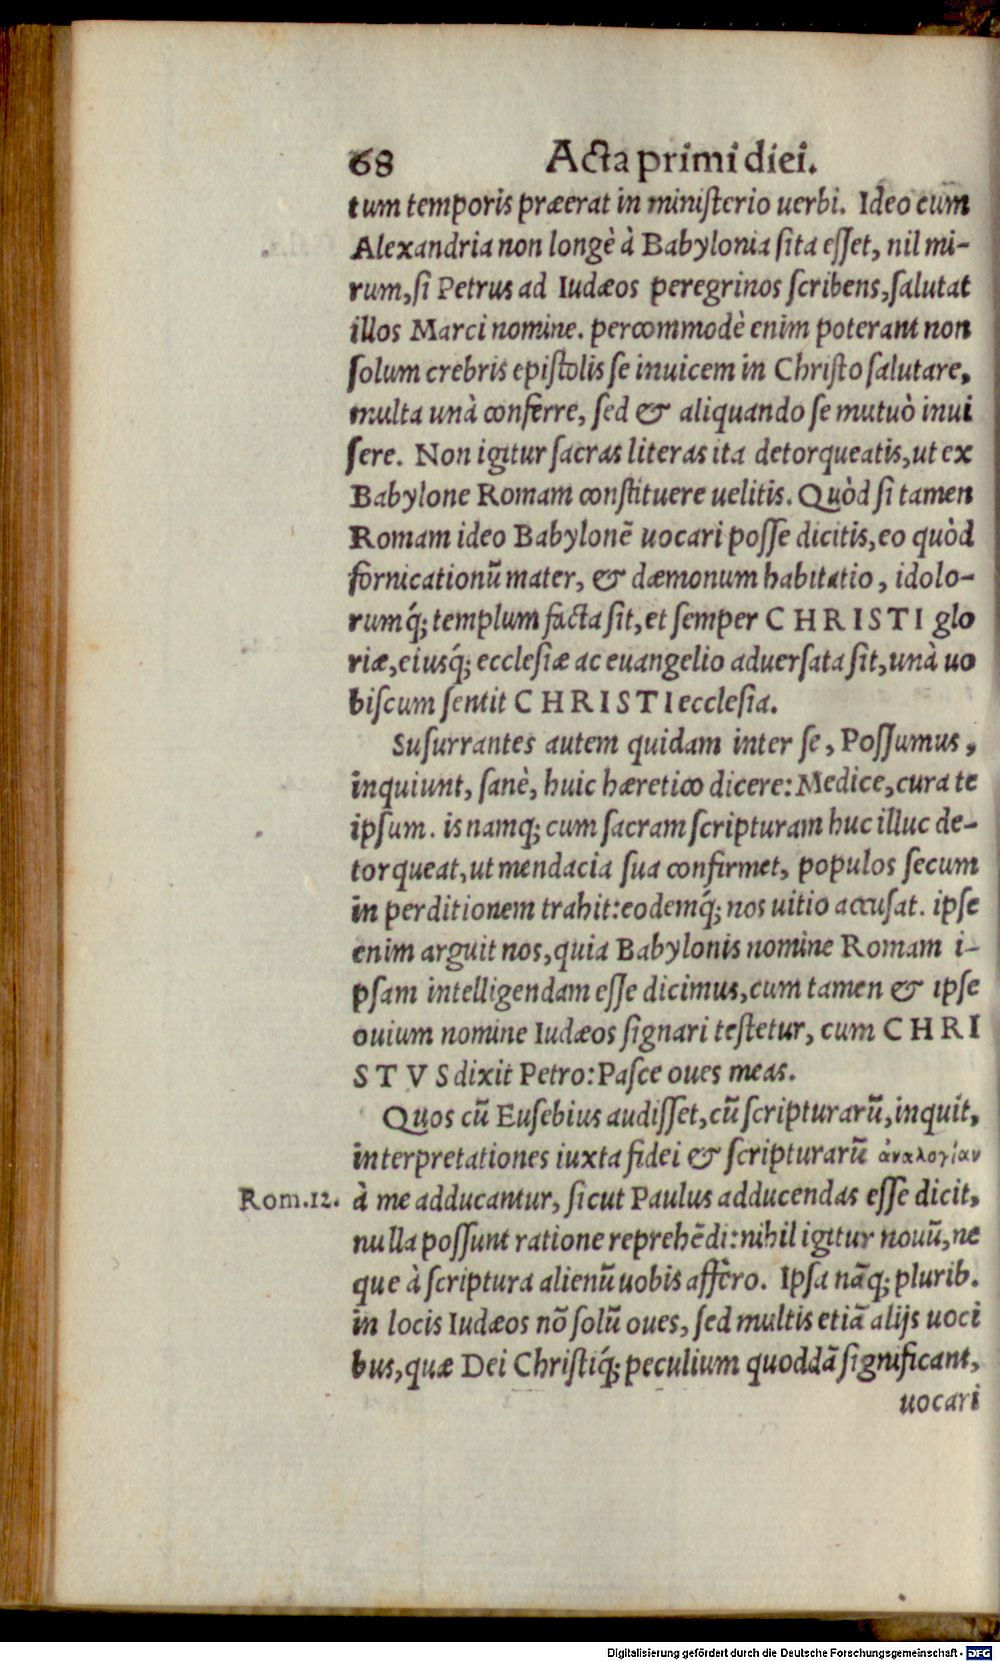 68 Acta primi diei.
tum temporis præerat in ministerio uerbi. Ideo cum
Alexandria non longè à Babylonia sita esset, nil mi-
rum, si Petrus ad Iudæos peregrinos scribens, salutat
illos Marci nomine. percommodè enim poterant non
solum crebris epistolis se inuicem in Christo salutare,
multa unà conferre, sed & aliquando se mutuò inui
sere. Non igitur sacras literas ita detorqueatis, ut ex
Babylone Romam constituere uelitis. Quòd si tamen
Romam ideo Babylonē uocari posse dicitis, eo quòd
fornicationũ mater, & dæmonum habitatio, idolo-
rumq́; templum facta sit, et semper CHRISTI glo
riæ, eiusq́; ecclesiæ ac euangelio aduersata sit, unà uo
biscum sentit CHRISTI ecclesia.
Susurrantes autem quidam inter se, Possumus,
inquiunt, sanè, huic hæretico dicere: Medice, cura te
ipsum. is namq; cum sacram scripturam huc illuc de-
torqueat, ut mendacia sua confirmet, populos secum
in perditionem trahit: eodemq́; nos uitio accusat. ipse
enim arguit nos, quia Babylonis nomine Romam i-
psam intelligendam esse dicimus, cum tamen & ipse
ouium nomine Iudæos signari testetur, cum CHRI
STVS dixit Petro: Pasce oues meas.
Quos cũ Eusebius audisset, cũ scripturarũ, inquit,
interpretationes iuxta fidei & scripturarũ ἀναλογίαν
Rom.12. à me adducantur, sicut Paulus adducendas esse dicit,
nulla possunt ratione reprehēdi: nihil igitur nouũ, ne
que à scriptura alienũ uobis affero. Ipsa nãq; plurib.
in locis Iudæos nõ solũ oues, sed multis etiã alijs uoci
bus, quæ Dei Christiq́; peculium quoddã significant,
uocari
Digitalisierung gefördert durch die Deutsche Forschungsgemeinschaft - DFG